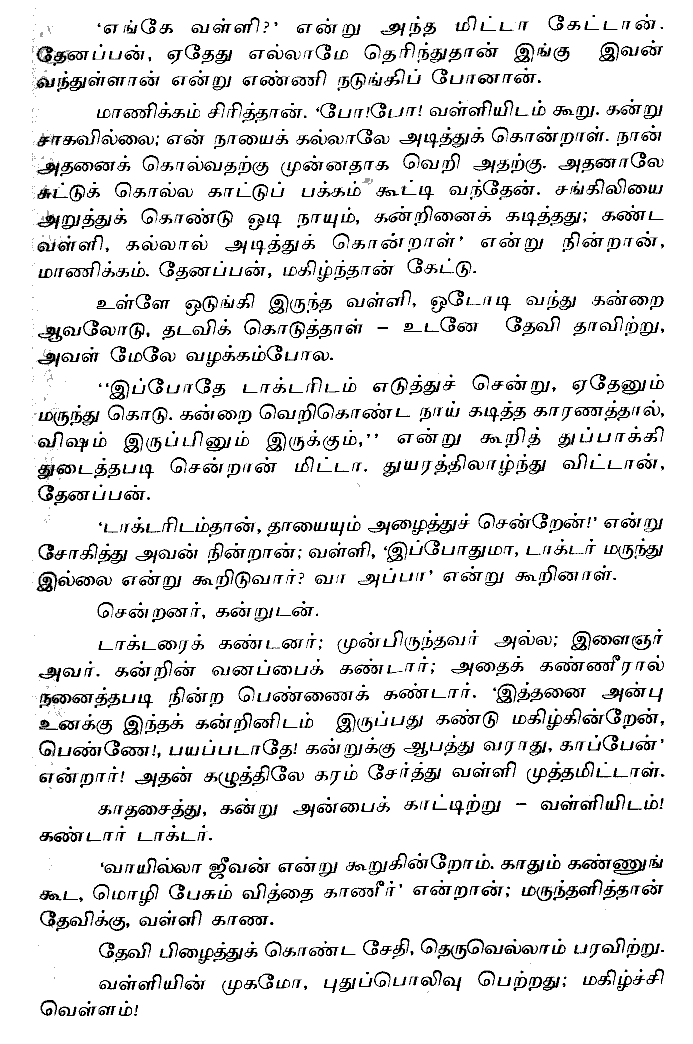 ‘எங்கே வள்ளி?’ என்று அந்த மிட்டா கேட்டான்.
தேனப்பன், ஏதேது எல்லாமே தெரிந்துதான் இங்கு இவன்
வந்துள்ளான் என்று எண்ணி நடுங்கிப் போனான்.
மாணிக்கம் சிரித்தான். ‘போ!போ! வள்ளியிடம் கூறு. கன்று
சாகவில்லை; என் நாயைக் கல்லாலே அடித்துக் கொன்றாள். நான்
அதனைக் கொல்வதற்கு முன்னதாக வெறி அதற்கு. அதனாலே
சுட்டுக் கொல்ல காட்டுப் பக்கம் கூட்டி வந்தேன். சங்கிலியை
அறுத்துக் கொண்டு ஓடி நாயும், கன்றினைக் கடித்தது; கண்ட
வள்ளி, கல்லால் அடித்துக் கொன்றாள்’ என்று நின்றான்,
மாணிக்கம். தேனப்பன், மகிழ்ந்தான் கேட்டு.
உள்ளே ஒடுங்கி இருந்த வள்ளி, ஓடோடி வந்து கன்றை
ஆவலோடு, தடவிக் கொடுத்தாள் – உடனே தேவி தாவிற்று,
அவள் மேலே வழக்கம்போல.
‘‘இப்போதே டாக்டரிடம் எடுத்துச் சென்று, ஏதேனும்
மருந்து கொடு. கன்றை வெறிகொண்ட நாய் கடித்த காரணத்தால்,
விஷம் இருப்பினும் இருக்கும்,’’ என்று கூறித் துப்பாக்கி
துடைத்தபடி சென்றான் மிட்டா. துயரத்திலாழ்ந்து விட்டான்,
தேனப்பன்.
‘டாக்டரிடம்தான், தாயையும் அழைத்துச் சென்றேன்!’ என்று
சோகித்து அவன் நின்றான்; வள்ளி, ‘இப்போதுமா, டாக்டர் மருந்து
இல்லை என்று கூறிடுவார்? வா அப்பா’ என்று கூறினாள்.
சென்றனர், கன்றுடன்.
டாக்டரைக் கண்டனர்; முன்பிருந்தவர் அல்ல; இளைஞர்
அவர். கன்றின் வனப்பைக் கண்டார்; அதைக் கண்ணீரால்
நனைத்தபடி நின்ற பெண்ணைக் கண்டார். ‘இத்தனை அன்பு
உனக்கு இந்தக் கன்றினிடம் இருப்பது கண்டு மகிழ்கின்றேன்,
பெண்ணே!, பயப்படாதே! கன்றுக்கு ஆபத்து வராது, காப்பேன்’
என்றார்! அதன் கழுத்திலே கரம் சேர்த்து வள்ளி முத்தமிட்டாள்.
காதசைத்து, கன்று அன்பைக் காட்டிற்று – வள்ளியிடம்!
கண்டார் டாக்டர்.
‘வாயில்லா ஜீவன் என்று கூறுகின்றோம். காதும் கண்ணுங்
கூட, மொழி பேசும் வித்தை காணீர்’ என்றான்; மருந்தளித்தான்
தேவிக்கு, வள்ளி காண.
தேவி பிழைத்துக் கொண்ட சேதி, தெருவெல்லாம் பரவிற்று.
வள்ளியின் முகமோ, புதுப்பொலிவு பெற்றது; மகிழ்ச்சி
வெள்ளம்!